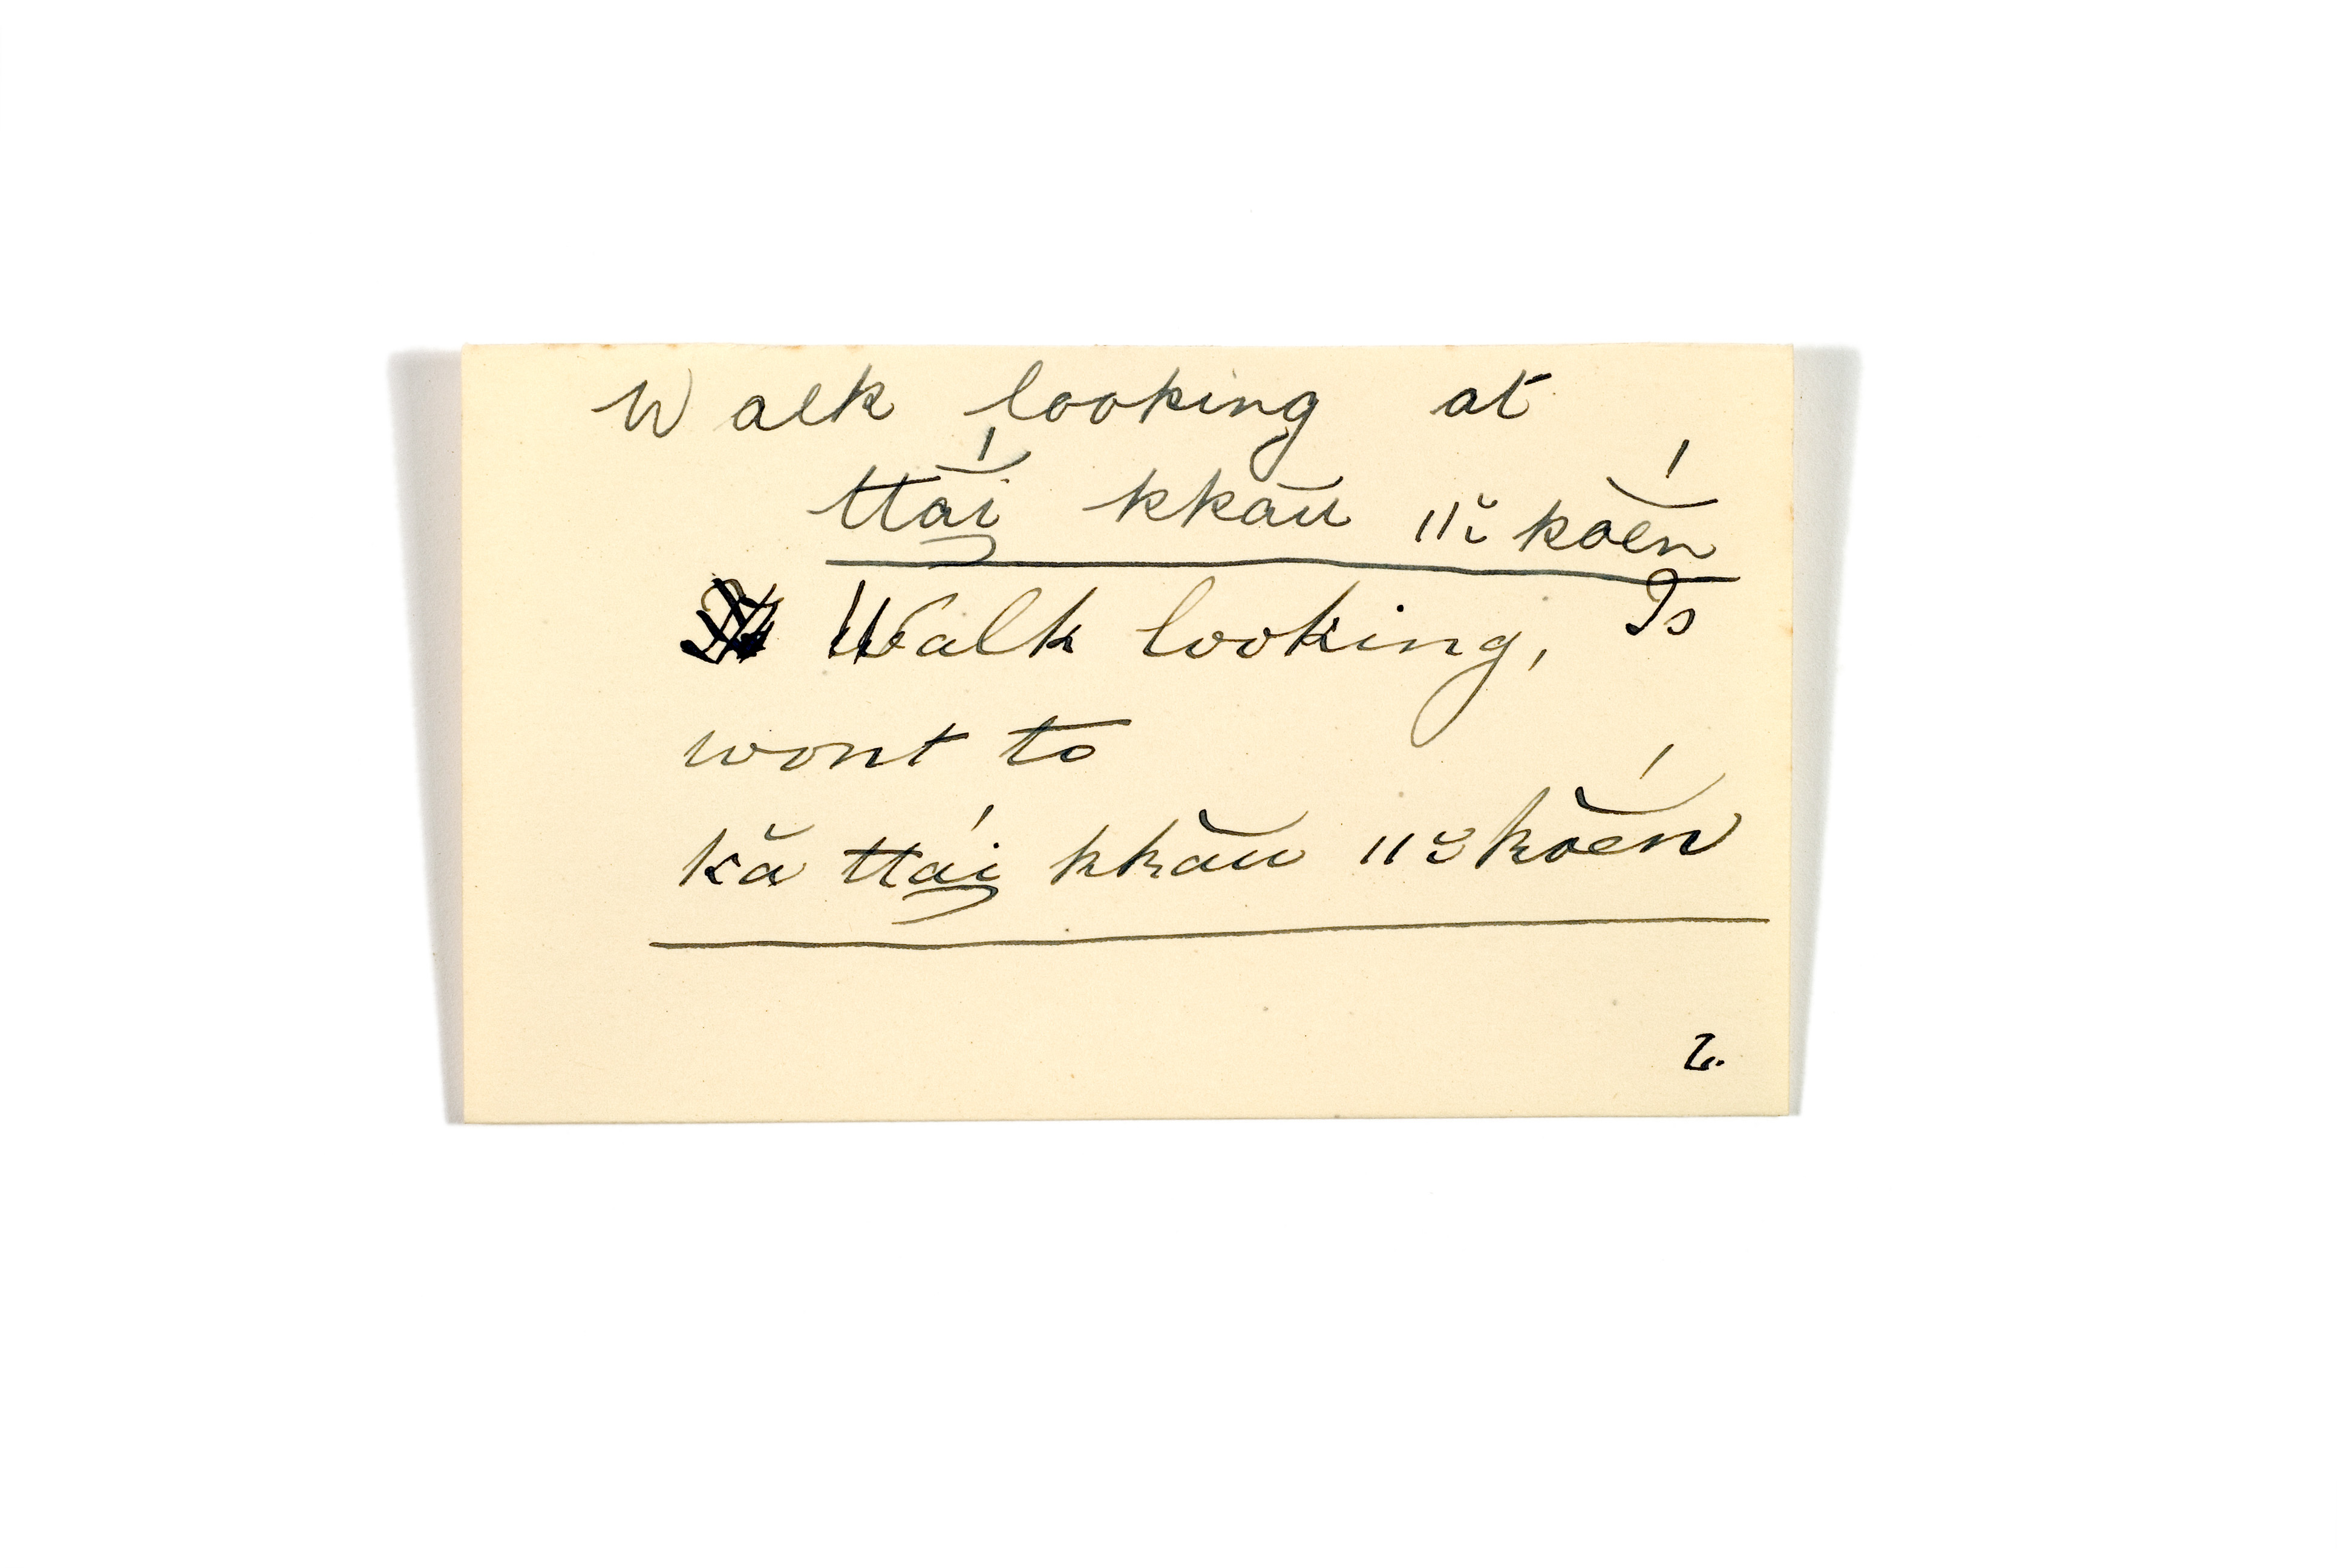 Walk looking at
ttái̯ kkāu ıı ĭ kŏén
Walk looking, Is
wont to
kă ttái̯ kkău ıı ŏ kŏén
2.